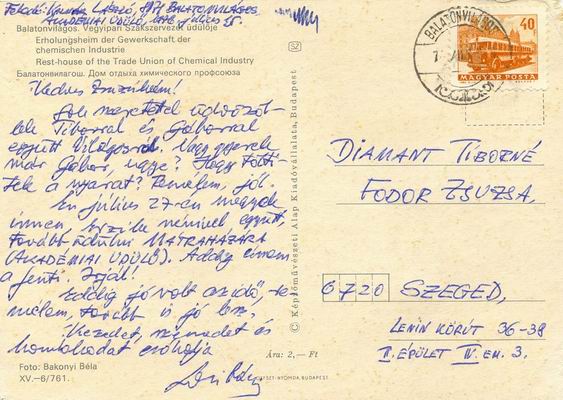 Feladó: Kalmár László, 8171 BALATONVILÁGOS
AKADÉMIAI ÜDÜLŐ, 1976 július 25.
Balatonvilágos. Vegyipari Szakszervezet üdülője
Erholungsheim der Gewerkschaft der
chemischen Industrie
Rest-house of the Trade Union of Chemical Industry
Балатонвилагош. Дом отдыха химического профсоюза
SZ
BALATONVILÁGOS
40
MAGYAR POSTA
Kedves Zsuzsikám!
Sok szeretettel üdvözöl-
lek Tiborral és Gáborral
együtt Világosról. Nagy gyerek
már Gábor, ugye? Hogy tölti-
tek a nyarat? Remélem, jól.
Én július 27-én megyek
innen, Erzsike nénivel együtt,
tovább üdülni MÁTRAHÁZÁRA
(AKADÉMIAI ÜDÜLŐ). Addig címem
a fenti. Írjál!
Eddig jó volt az idő, re-
mélem, tovább is jó lesz.
Kezedet, szemedet és
homlokodat csókolja
Laci bácsi
DIAMANT TIBORNÉ
FODOR ZSUZSA,
6720 SZEGED,
LENIN KÖRÚT 36-38
II. ÉPÜLET IV. EM. 3.
© Képzőművészeti Alap Kiadóvállalata, Budapest
Ára: 2,— Ft
Foto: Bakonyi Béla
XV.—6/761.
NYOMDA, BUDAPEST